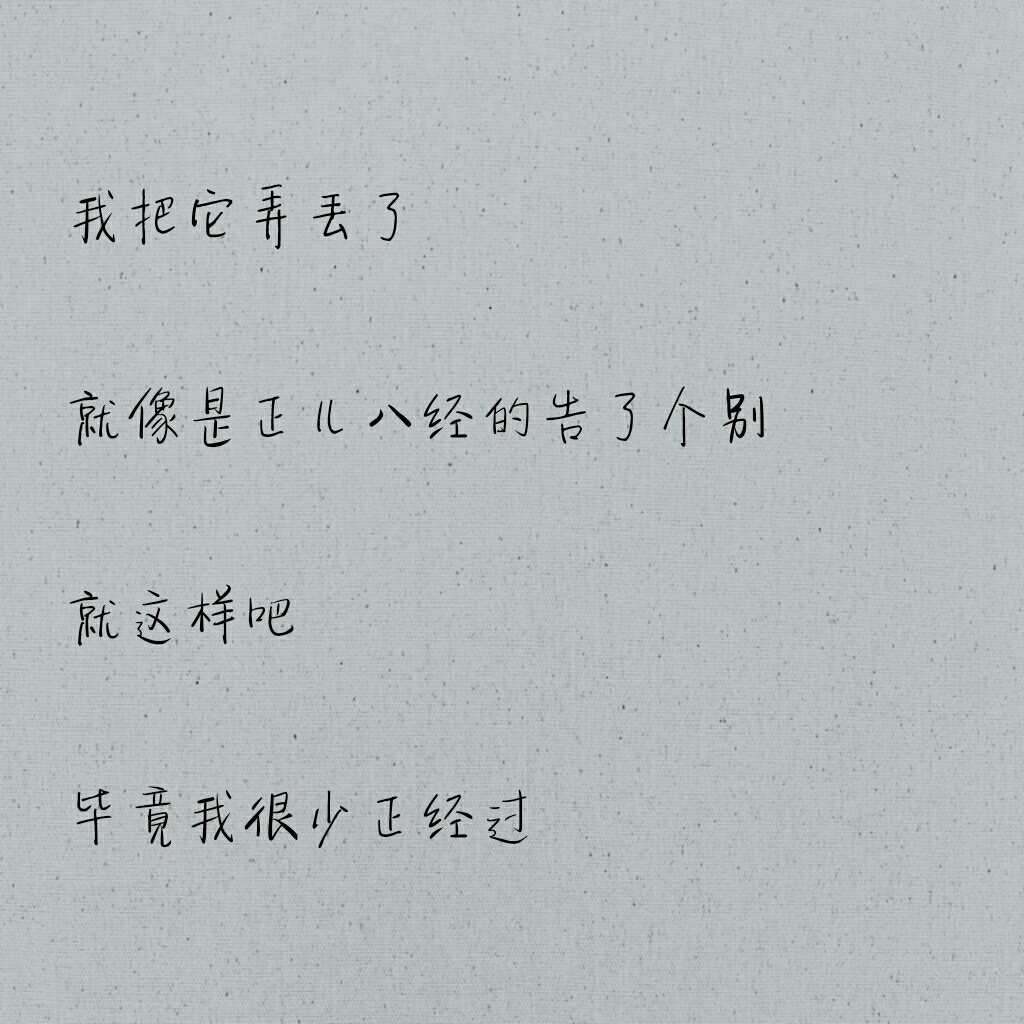 我把它弄丢了
就像是正儿八经的告了个别
就这样吧
毕竟我很少正经过